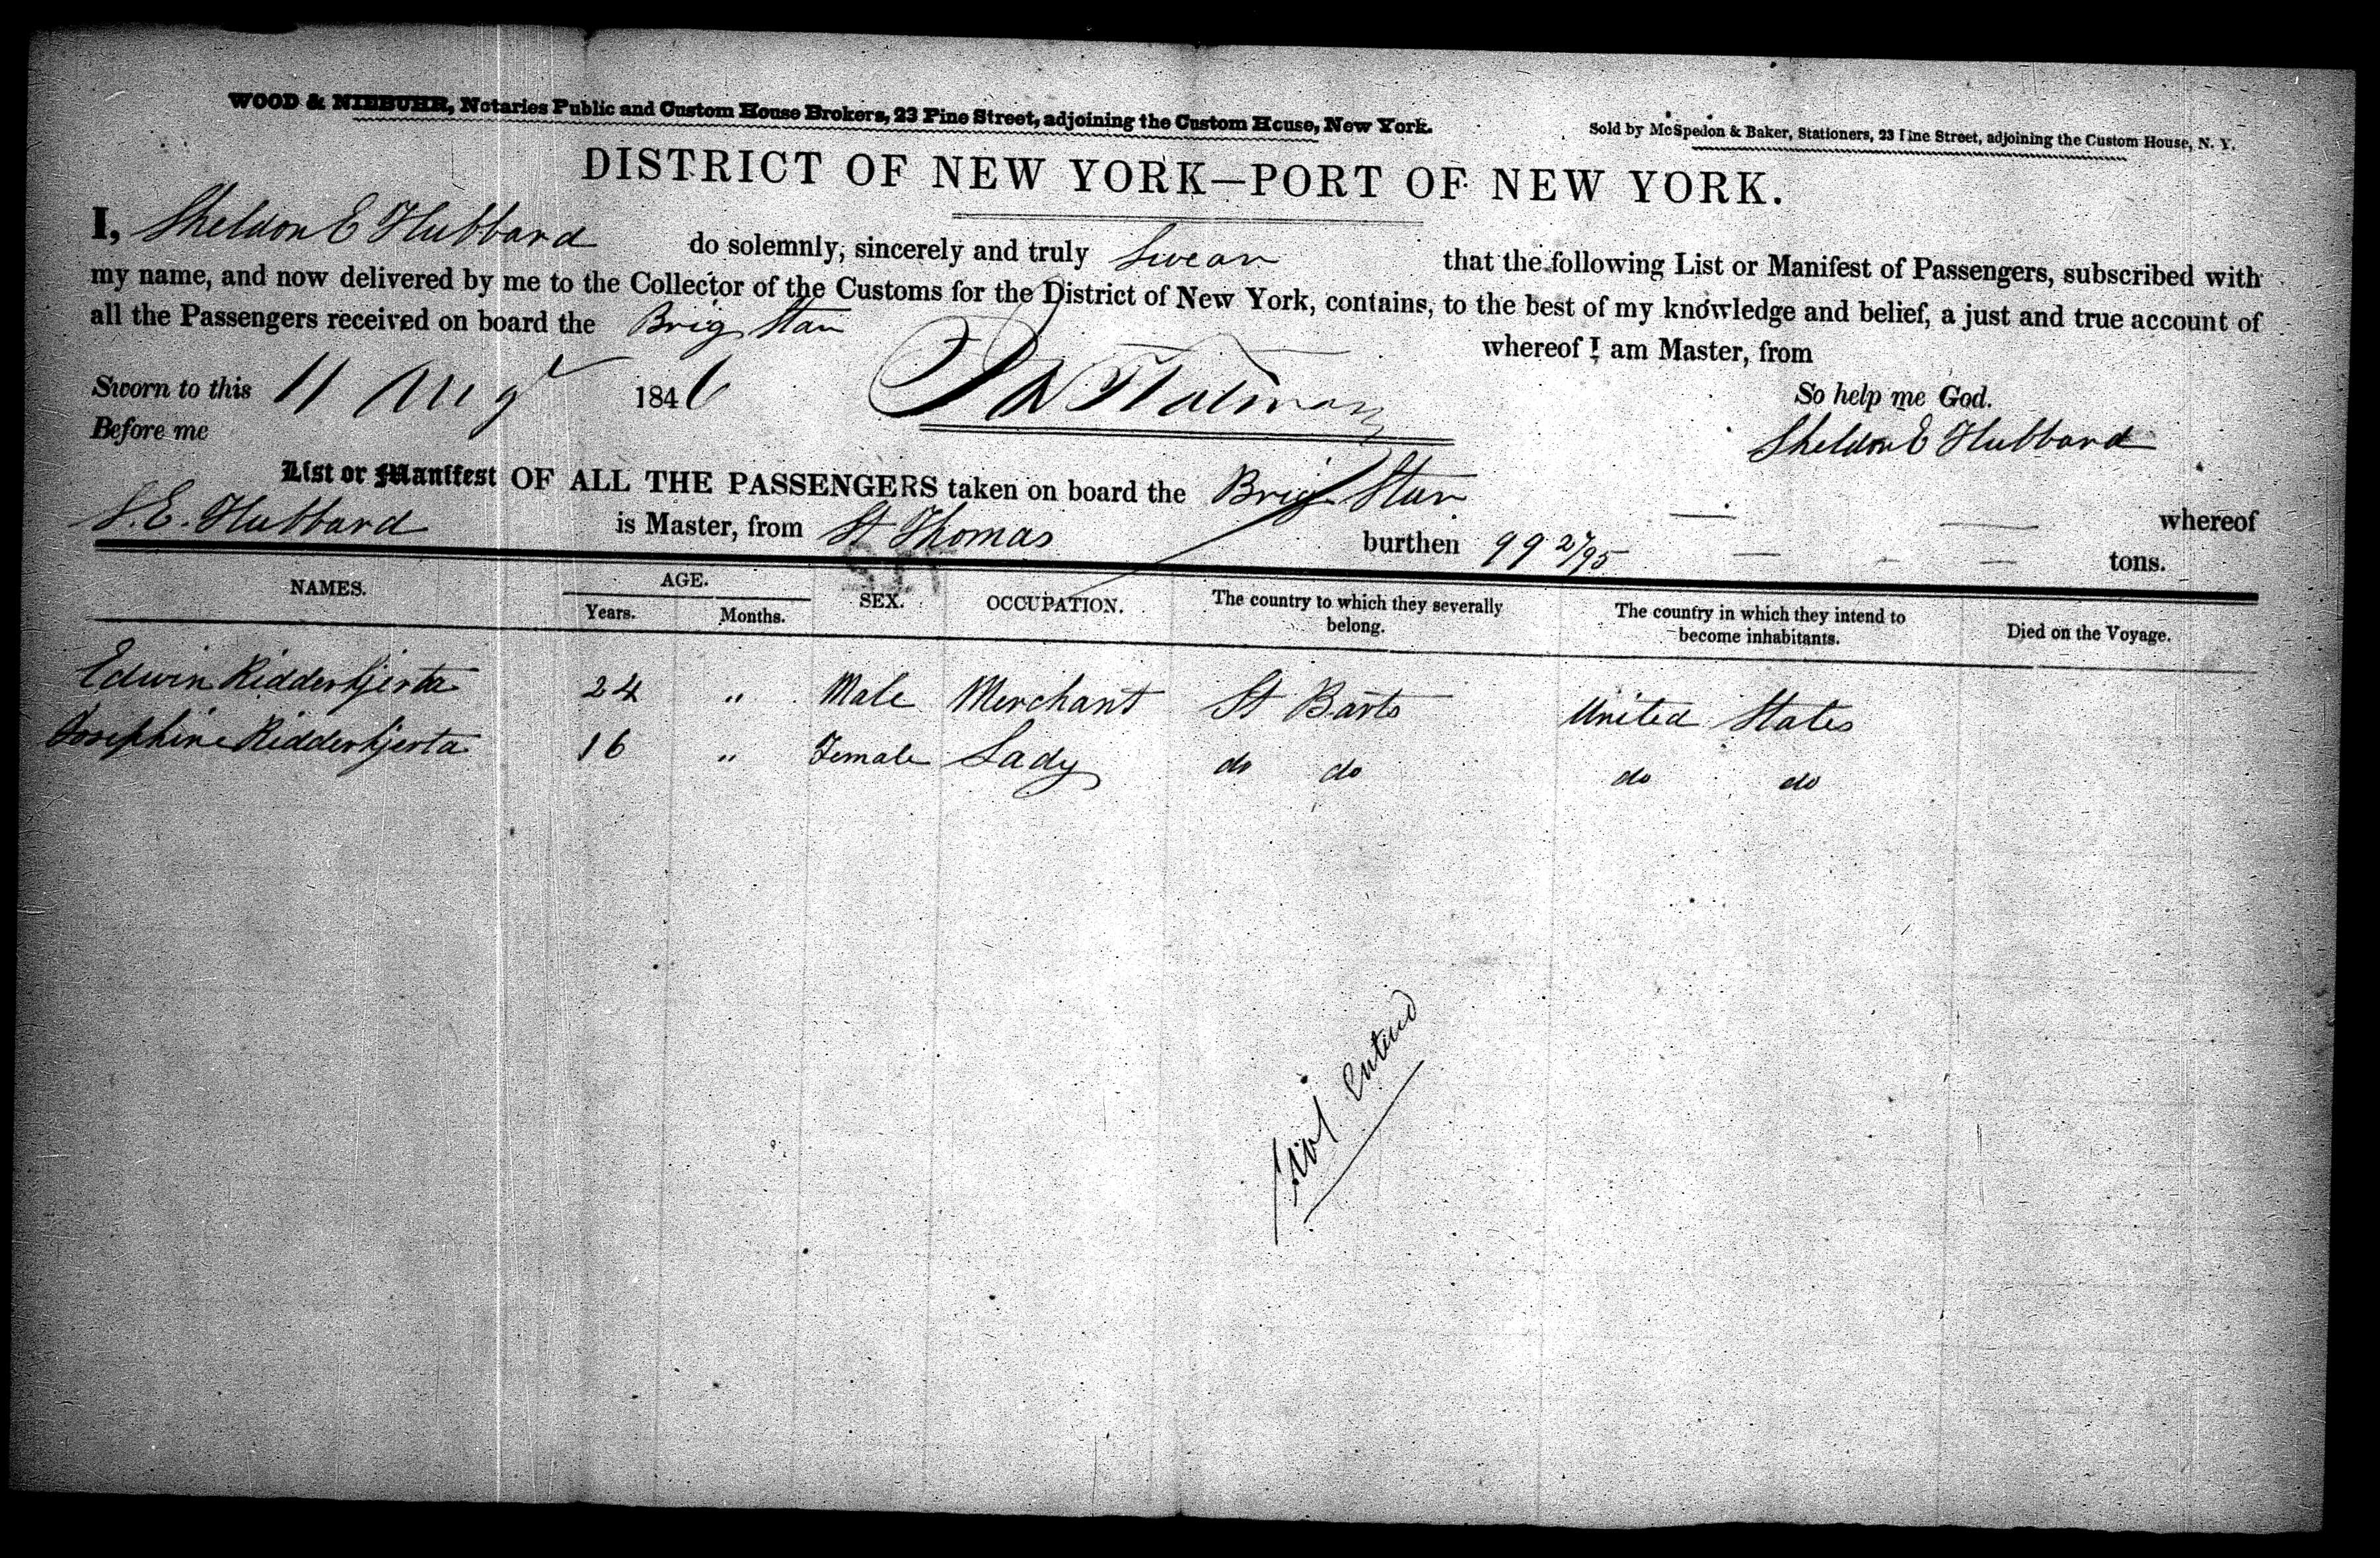 WOOD & NIEBUHR, Notaries Public and Custom House Brokers, 23 Pine Street, adjoining the Custom House, New York.
Sold by McSpedon & Baker, Stationers, 23 Pine Street, adjoining the Custom House, N. Y.
DISTRICT OF NEW YORK—PORT OF NEW YORK.
I, Sheldon E Hubbard do solemnly, sincerely and truly Swear that the following List or Manifest of Passengers, subscribed with
my name, and now delivered by me to the Collector of the Customs for the District of New York, contains, to the best of my knowledge and belief, a just and true account of
all the Passengers received on board the Brig Star whereof I am Master, from
Sworn to this 11 Augt 1846 So help me God.
Before me Sheldon E Hubbard
List or Manifest OF ALL THE PASSENGERS taken on board the Brig Star whereof
S. E. Hubbard is Master, from St Thomas burthen 99 27/95 tons.
NAMES. AGE. SEX. OCCUPATION. The country to which they severally belong. The country in which they intend to become inhabitants. Died on the Voyage.
Years. Months.
Edwin Ridderhjerta 24 " Male Merchant St Barts United States
Josephine Ridderhjerta 16 " Female Lady do do do do